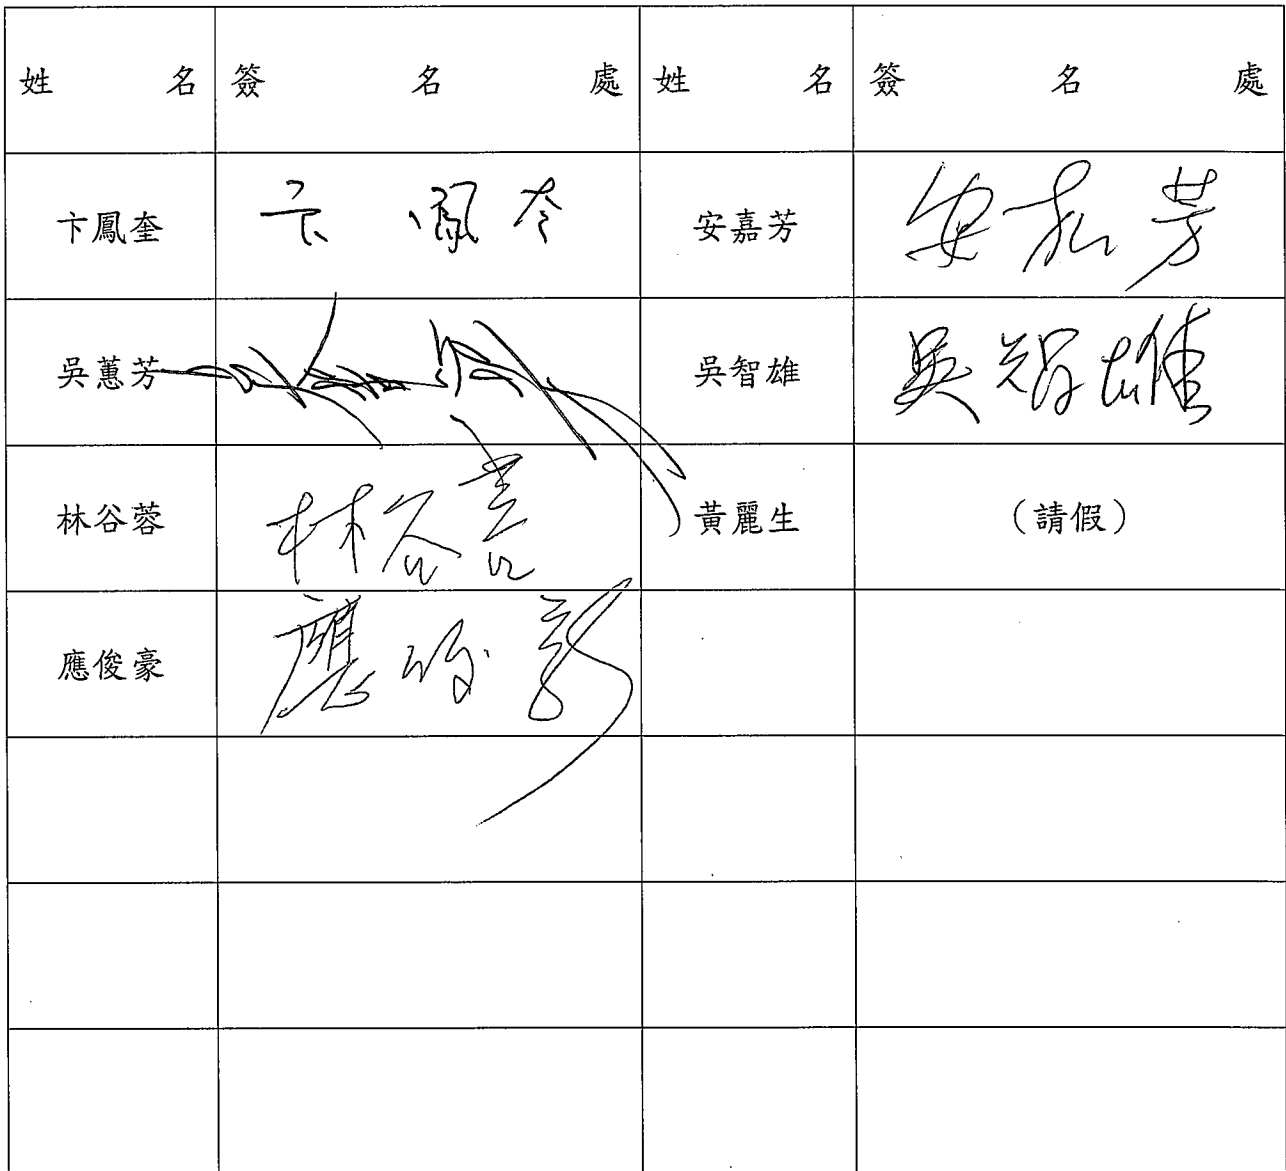 姓名 簽名處 姓名 簽名處
卞鳳奎 卞鳳奎 安嘉芳 安嘉芳
吳蕙芳 吳智雄 吳智雄
林谷蓉 林谷蓉 黃麗生 (請假)
應俊豪 應俊豪